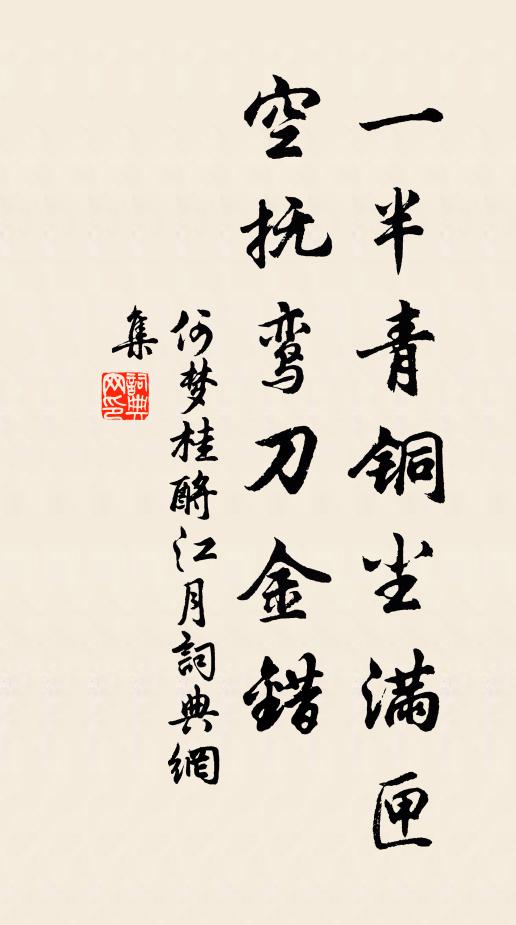 一半青铜尘满匣
空抚鸾刀金错
何梦桂酹江月詞典網
集
詞典
网印